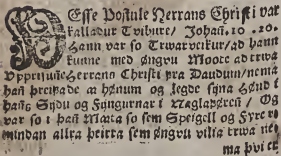 DEsse Postule Herrans Christi var
kalladur Tvibure/ Johañ. 10. 20.
Hann var so Trwarveikur/ ad hann
kunne med øngvu Moote ad trwa
Upprisuñe Herrans Christi fra Daudum/ nema
hañ þreifade a hønum og legde sijna Hønd i
hañs Sijdu og Fijngurnar i Naglaføreñ/ Og
var so i þañ Maata so sem Speigell og Fyre
mindan allra þeirra sem øngvu vilia trwa ne
ma þvi er